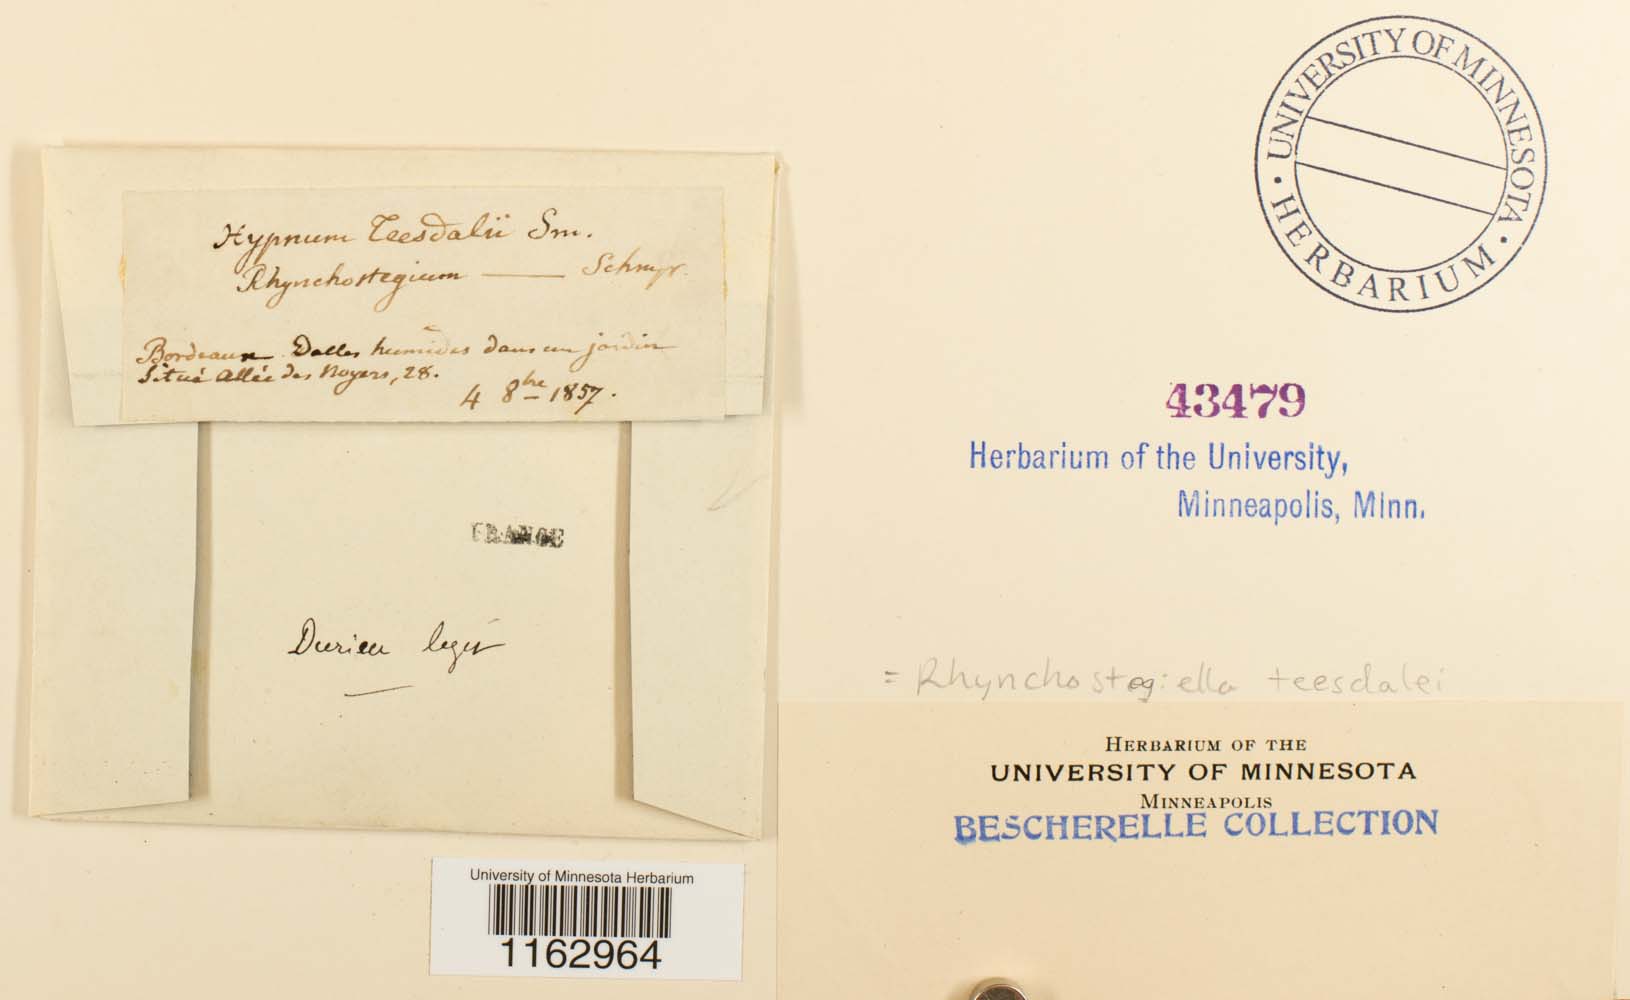 Hypnum Teesdalii Sm.
Rhynchostegium —— Schmpr.
Bordeaux. Dalles humides dans un jardin
situé allée des Noyers, 28.
4 8bre 1857.
FRANCE
Durieu legit
University of Minnesota Herbarium
1162964
· UNIVERSITY OF MINNESOTA · HERBARIUM
43479
Herbarium of the University,
Minneapolis, Minn.
= Rhynchostegiella teesdalei
HERBARIUM OF THE
UNIVERSITY OF MINNESOTA
MINNEAPOLIS
BESCHERELLE COLLECTION